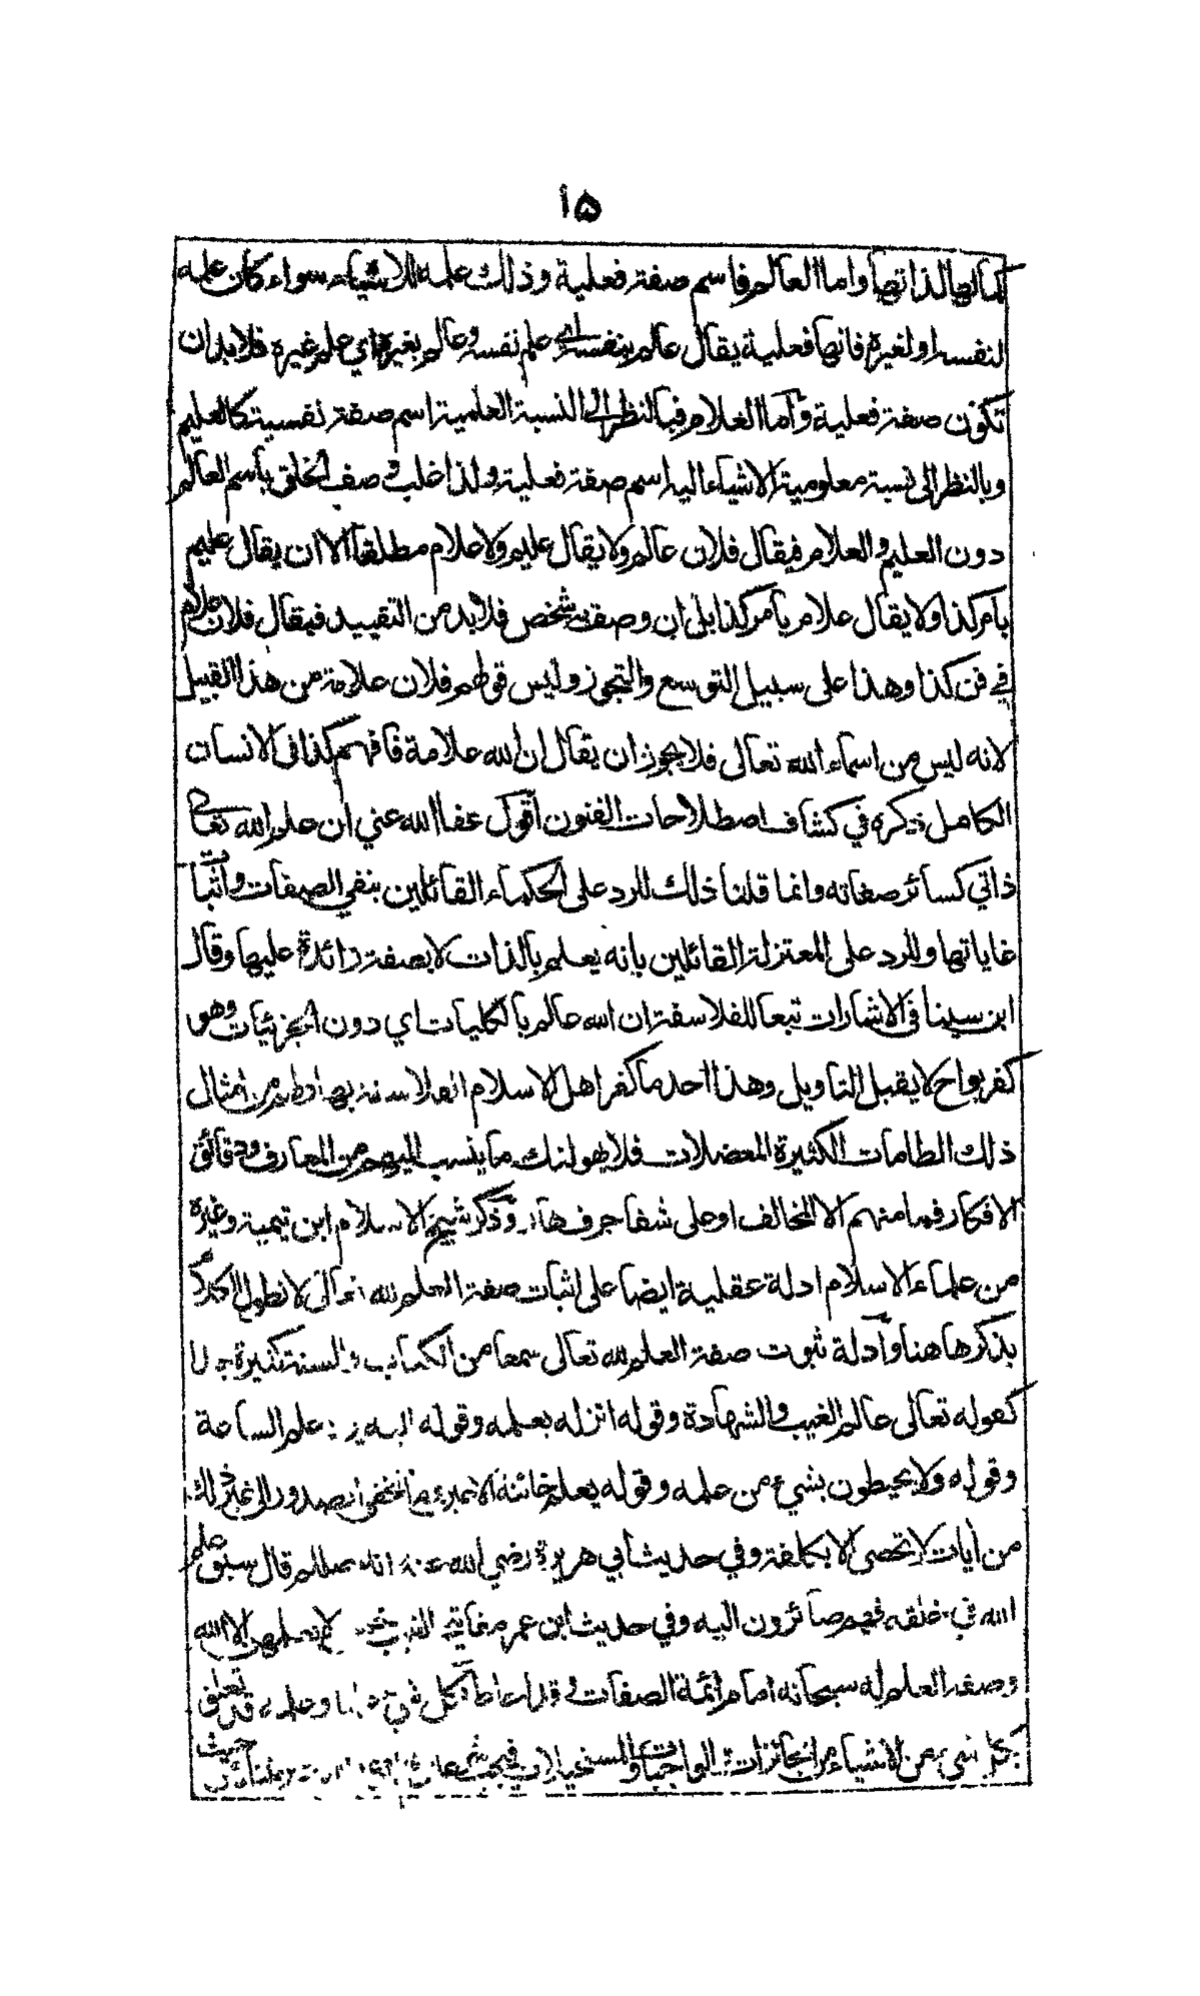 ١٥
كمالها لذاتها واما العالم فاسم صفة فعلية وذلك علمه للاشياء سواء كان علمه
لنفسه او لغيره فانها فعلية يقال عالم بنفسه اي علم نفسه وعالم بغيره اي علم غيره فلا بد ان
تكون صفة فعلية وأما العلام فبالنظر الى النسبة العلمية اسم صفة نفسية كالعليم
وبالنظر الى نسبة معلومية الاشياء اليه اسم صفة فعلية ولذا غلب وصف الخلق باسم العالم
دون العليم والعلام فيقال فلان عالم ولا يقال عليم ولا علام مطلقا الا ان يقال عليم
بأمر كذا ولا يقال علام بأمر كذا بل ان وصف به شخص فلا بد من التقييد فيقال فلان علام
في فن كذا وهذا على سبيل التوسع والتجوز وليس قولهم فلان علامة من هذا القبيل
لانه ليس من اسماء الله تعالى فلا يجوز ان يقال ان الله علامة فافهم كذا في الانسان
الكامل ذكره في كشاف اصطلاحات الفنون أقول عفا الله عني ان علم الله تعالى
ذاتي كسائر صفاته وانما قلنا ذلك للرد على الحكماء القائلين بنفي الصفات واثبات
غاياتها وللرد على المعتزلة القائلين بانه يعلم بالذات لا بصفة زائدة عليها وقال
ابن سينا في الاشارات تبعا للفلاسفة ان الله عالم بالكليات اي دون الجزئيات وهو
كفر بواح لا يقبل التاويل وهذا احد ما كفر اهل الاسلام الفلاسفة به من امثال
ذلك الطامات الكثيرة المعضلات فلا يهولنك ما ينسب اليهم من المعارف ودقائق
الافكار فما منهم الا المخالف او على شفا جرف هار وذكر شيخ الاسلام ابن تيمية وغيره
من علماء الاسلام ادلة عقلية ايضا على اثبات صفة العلم لله تعالى لا نطول الكلام
بذكرها هنا وأدلة ثبوت صفة العلم لله تعالى سمعا من الكتاب والسنة كثيرة جدا
كقوله تعالى عالم الغيب والشهادة وقوله انزله بعلمه وقوله اليه يرد علم الساعة
وقوله ولا يحيطون بشيء من علمه وقوله يعلم خائنة الاعين وما تخفي الصدور الى غير ذلك
من أيات لا تحصى الا بكلفة وفي حديث أبي هريرة رضي الله عنه انه صلعم قال سبق علم
الله في خلقه فهم صائرون اليه وفي حديث ابن عمر مفاتيح الغيب خمس لا يعلمهن الا الله
وصفة العلم له سبحانه امام أئمة الصفات وقد احاط بكل شيء علما وعلمه قد تعلق
بكل شيء من الاشياء من الجائزات والواجبات والمستحيلات